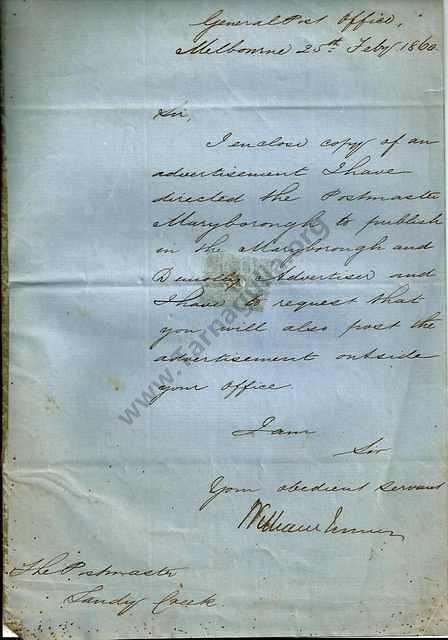 General Post Office,
Melbourne 25th Feby 1860
Sir,
I enclose copy of an
advertisement I have
directed the Postmaster
Maryborough to publish
in the Maryborough and
Dunolly Advertiser and
I have to request that
you will also post the
advertisement outside
your Office
I am
Sir
Your obedient servant
William
The Postmaster
Sandy Creek
www.Tarnagulla.org